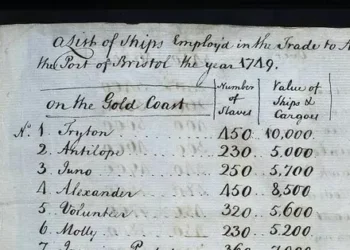 A List of Ships Employ'd in the Trade to A
the Port of Bristol the year 1749.
on the Gold Coast Number of Slaves Value of Ships & Cargoes
No. 1 Tryton 450 10,000
2 Antilope 230 5,000
3 Juno 250 5,700
4 Alexander 450 8,500
5 Volunteer 320 5,600
6 Molly 230 5,200
7 360